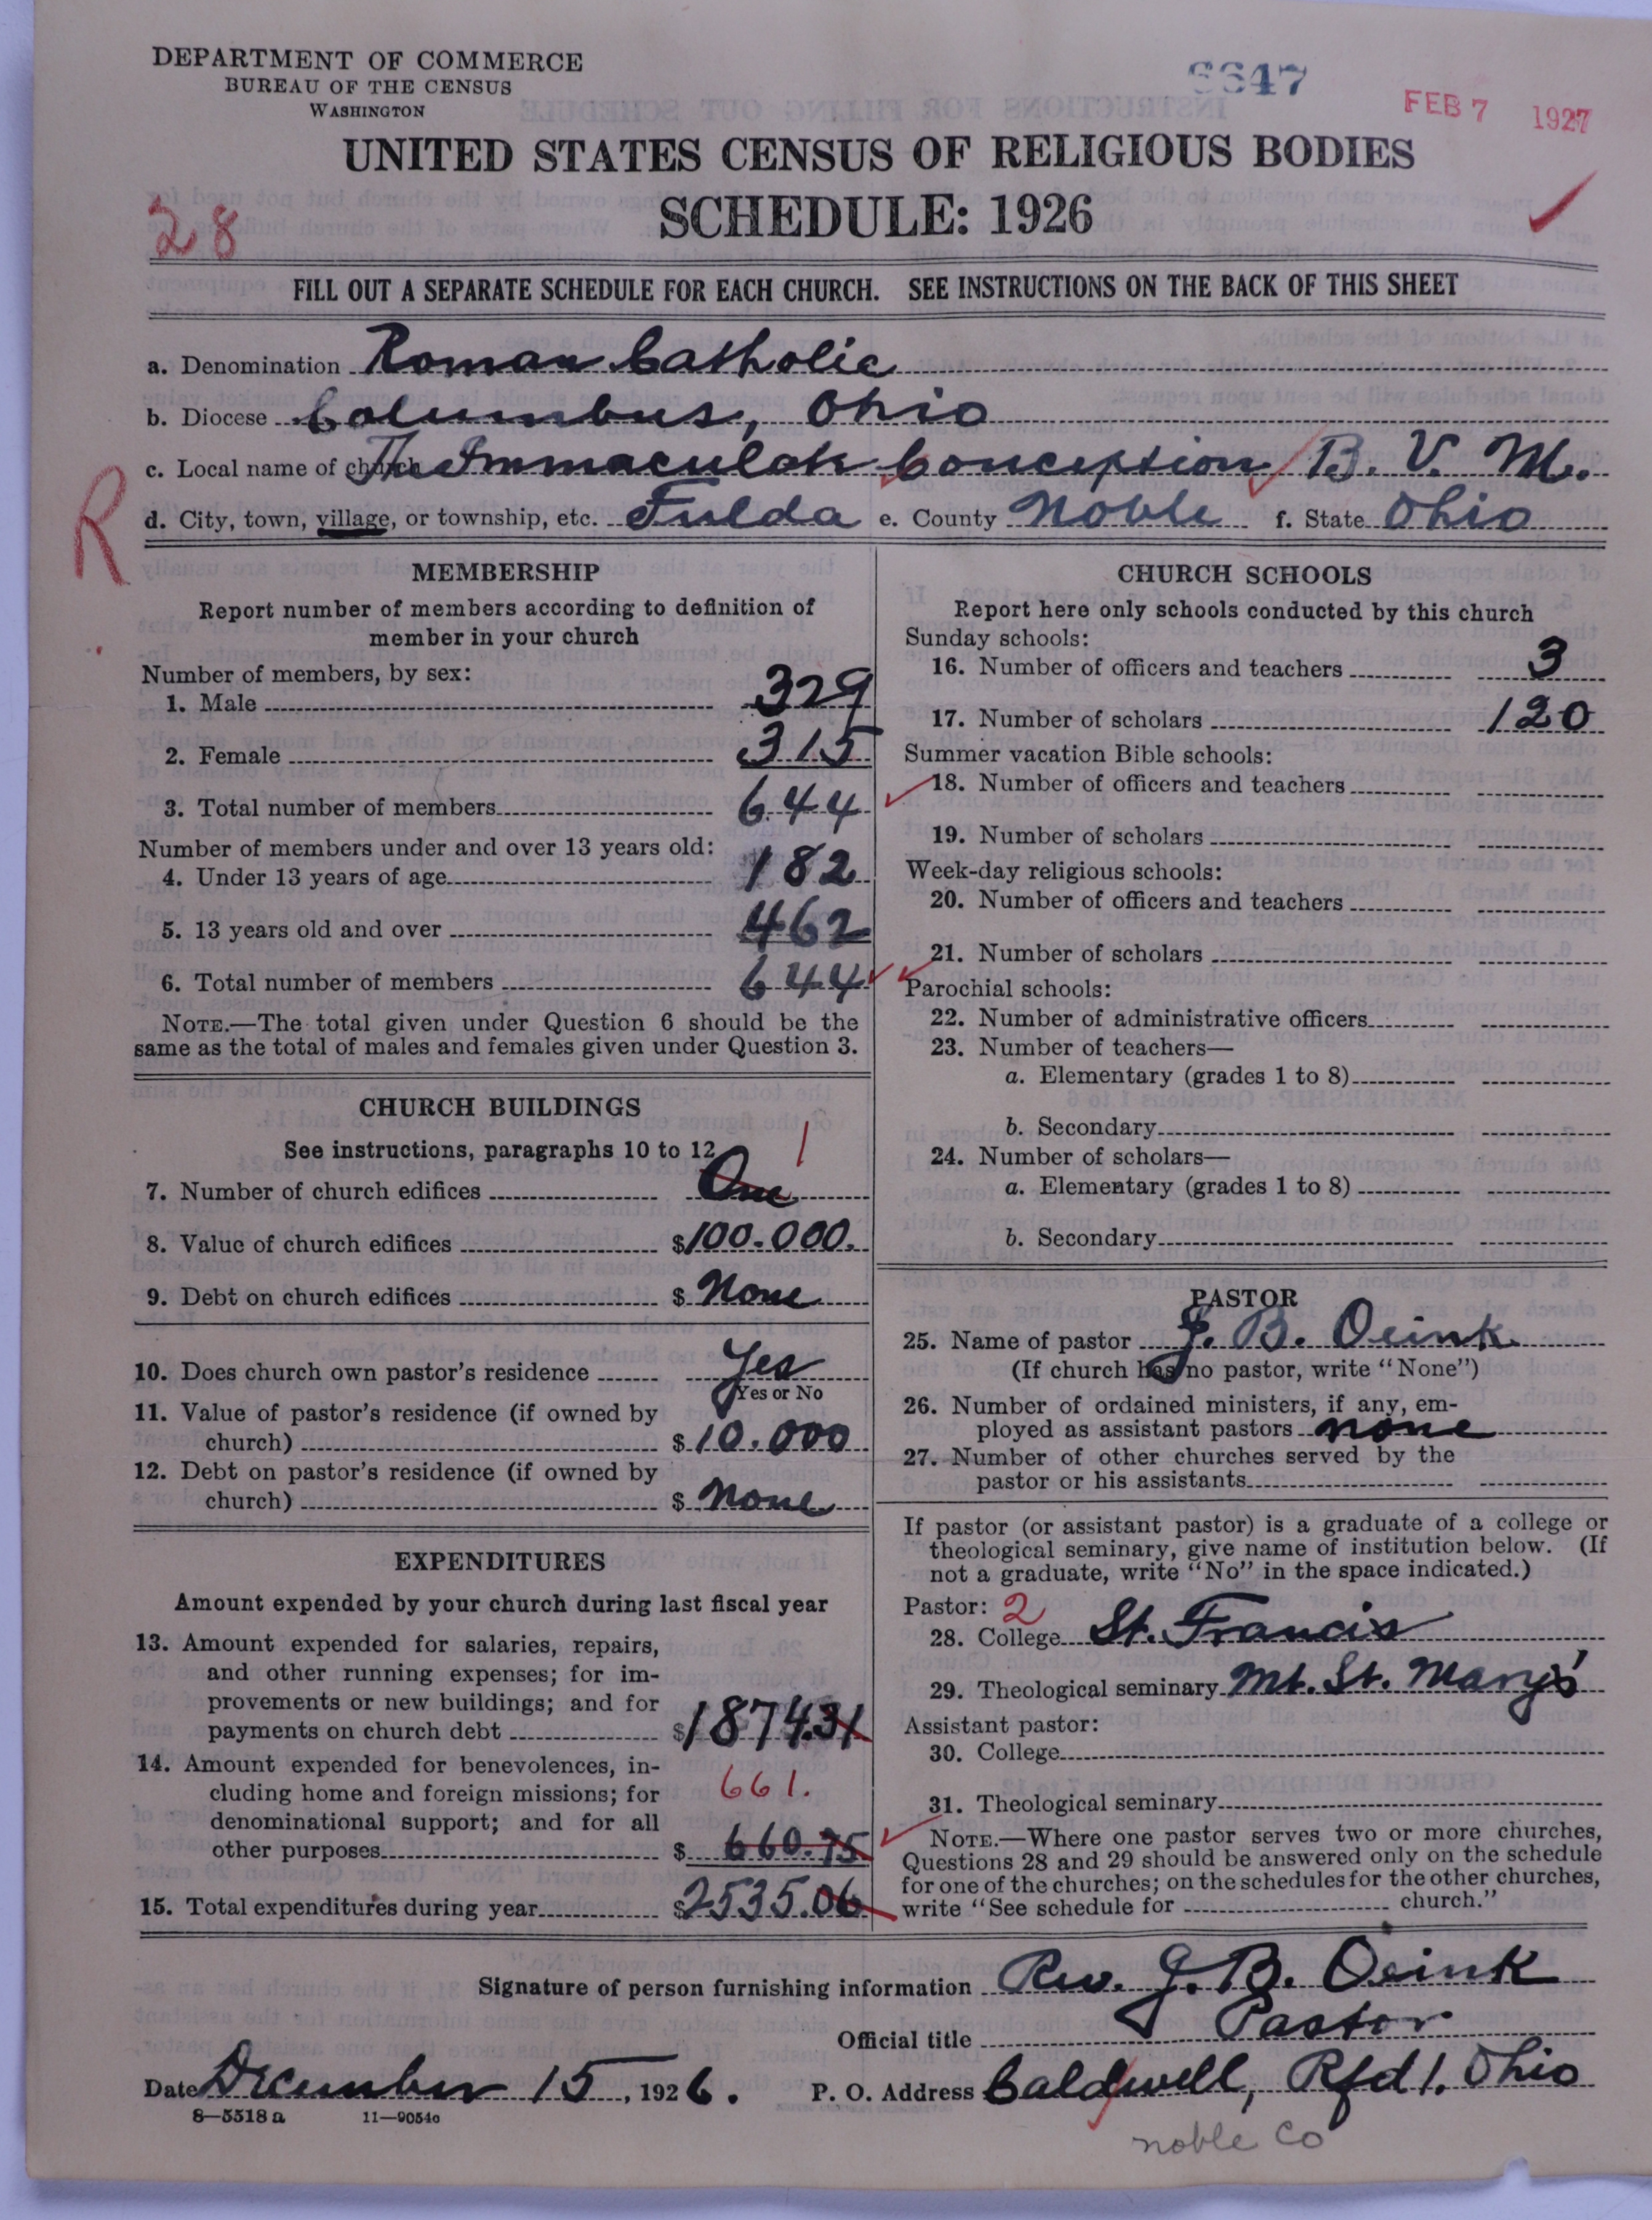 DEPARTMENT OF COMMERCE
BUREAU OF THE CENSUS
WASHINGTON
FEB 7 1927
UNITED STATES CENSUS OF RELIGIOUS BODIES
28
SCHEDULE: 1926
FILL OUT A SEPARATE SCHEDULE FOR EACH CHURCH. SEE INSTRUCTIONS ON THE BACK OF THIS SHEET
a. Denomination Roman Catholic
b. Diocese Columbus, Ohio
c. Local name of church The Immaculate Conception B. V. M.
R
d. City, town, village, or township, etc. Fulda e. County Noble f. State Ohio
MEMBERSHIP
Report number of members according to definition of
member in your church
Number of members, by sex:
1. Male 329
2. Female 315
3. Total number of members 644
Number of members under and over 13 years old:
4. Under 13 years of age 182
5. 13 years old and over 462
6. Total number of members 644
NOTE.—The total given under Question 6 should be the
same as the total of males and females given under Question 3.
CHURCH BUILDINGS
See instructions, paragraphs 10 to 12
1
7. Number of church edifices One
8. Value of church edifices $100.000.
9. Debt on church edifices $ None
10. Does church own pastor's residence Yes
Yes or No
11. Value of pastor's residence (if owned by
church) $10.000
12. Debt on pastor's residence (if owned by
church) $ None
EXPENDITURES
Amount expended by your church during last fiscal year
13. Amount expended for salaries, repairs,
and other running expenses; for im-
provements or new buildings; and for
payments on church debt $1874.31
14. Amount expended for benevolences, in-
cluding home and foreign missions; for 661.
denominational support; and for all
other purposes $ 660.75
15. Total expenditures during year $2535.06
CHURCH SCHOOLS
Report here only schools conducted by this church
Sunday schools:
16. Number of officers and teachers 3
17. Number of scholars 120
Summer vacation Bible schools:
18. Number of officers and teachers
19. Number of scholars
Week-day religious schools:
20. Number of officers and teachers
21. Number of scholars
Parochial schools:
22. Number of administrative officers
23. Number of teachers—
a. Elementary (grades 1 to 8)
b. Secondary
24. Number of scholars—
a. Elementary (grades 1 to 8)
b. Secondary
PASTOR
25. Name of pastor J. B. Oeink
(If church has no pastor, write "None")
26. Number of ordained ministers, if any, em-
ployed as assistant pastors none
27. Number of other churches served by the
pastor or his assistants
If pastor (or assistant pastor) is a graduate of a college or
theological seminary, give name of institution below. (If
not a graduate, write "No" in the space indicated.)
Pastor: 2
28. College St. Francis
29. Theological seminary Mt. St. Mary's
Assistant pastor:
30. College
31. Theological seminary
NOTE.—Where one pastor serves two or more churches,
Questions 28 and 29 should be answered only on the schedule
for one of the churches; on the schedules for the other churches,
write "See schedule for church."
Signature of person furnishing information Rev. J. B. Oeink
Official title Pastor
Date December 15, 1926. P. O. Address Caldwell, Rfd 1. Ohio
8—5518 a 11—9054c
noble Co